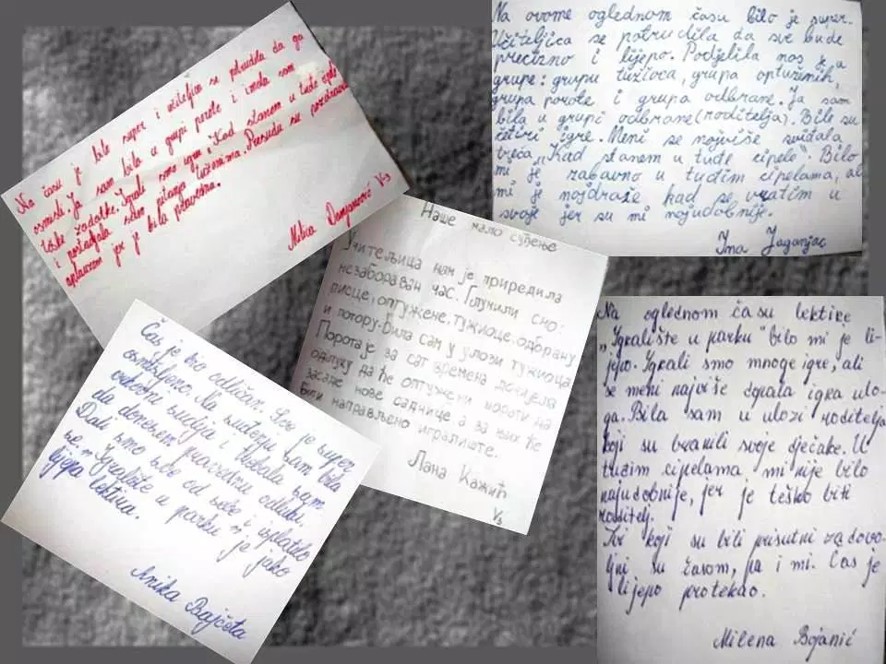 Na času je bilo super i učiteljica se potrudila da ga
osmisli. Ja sam bila u grupi porote i imala sam
teške zadatke. Igrali smo igru „Kad stanem u tuđe cipele“
i postavljala sam pitanja tužiocima. Presudu su pozdravili
aplauzom jer je bila pravedna.
Milica Damjanović V3
Na ovome oglednom času bilo je super.
Učiteljica se potrudila da sve bude
precizno i lijepo. Podjelila nas je u
grupe: grupu tužioca, grupa optuženih,
grupa porote i grupa odbrane. Ja sam
bila u grupi odbrane (roditelja). Bile su
četiri igre. Meni se najviše sviđala
treća „Kad stanem u tuđe cipele“. Bilo
mi je zabavno u tuđim cipelama, ali
mi je najdraže kad se vratim u
svoje jer su mi najudobnije.
Ina Jaganjac
Наше мало суђење
Учитељица нам је приредила
незабораван час. Глумили смо:
писце, оптужене, тужиоце, одбрану
и потору. Била сам у улози тужиоца
Порота је за сат времена донијела
одлуку да ће оптужени морати да
засаде нове саднице а за њих ће
бити направљено игралиште.
Лана Кажић
V3
Čas je bio odličan. Sve je super
osmišljeno. Na suđenju sam bila
vrhovni sudija i trebala sam
da donesem pravednu odluku.
Dali smo sve od sebe i isplatilo
se. „Igralište u parku“ je jako
lijepa lektira.
Anika Bajčeta
Na oglednom času lektire
„Igralište u parku“ bilo mi je li-
jepo. Igrali smo mnoge igre, ali
se meni najviše dopala igra ulo-
ga. Bila sam u ulozi roditelja
koji su branili svoje dječake. U
tuđim cipelama mi nije bilo
najudobnije, jer je teško biti
roditelj.
Svi koji su bili prisutni zadovo-
ljni su časom, pa i mi. Čas je
lijepo protekao.
Milena Bojanić